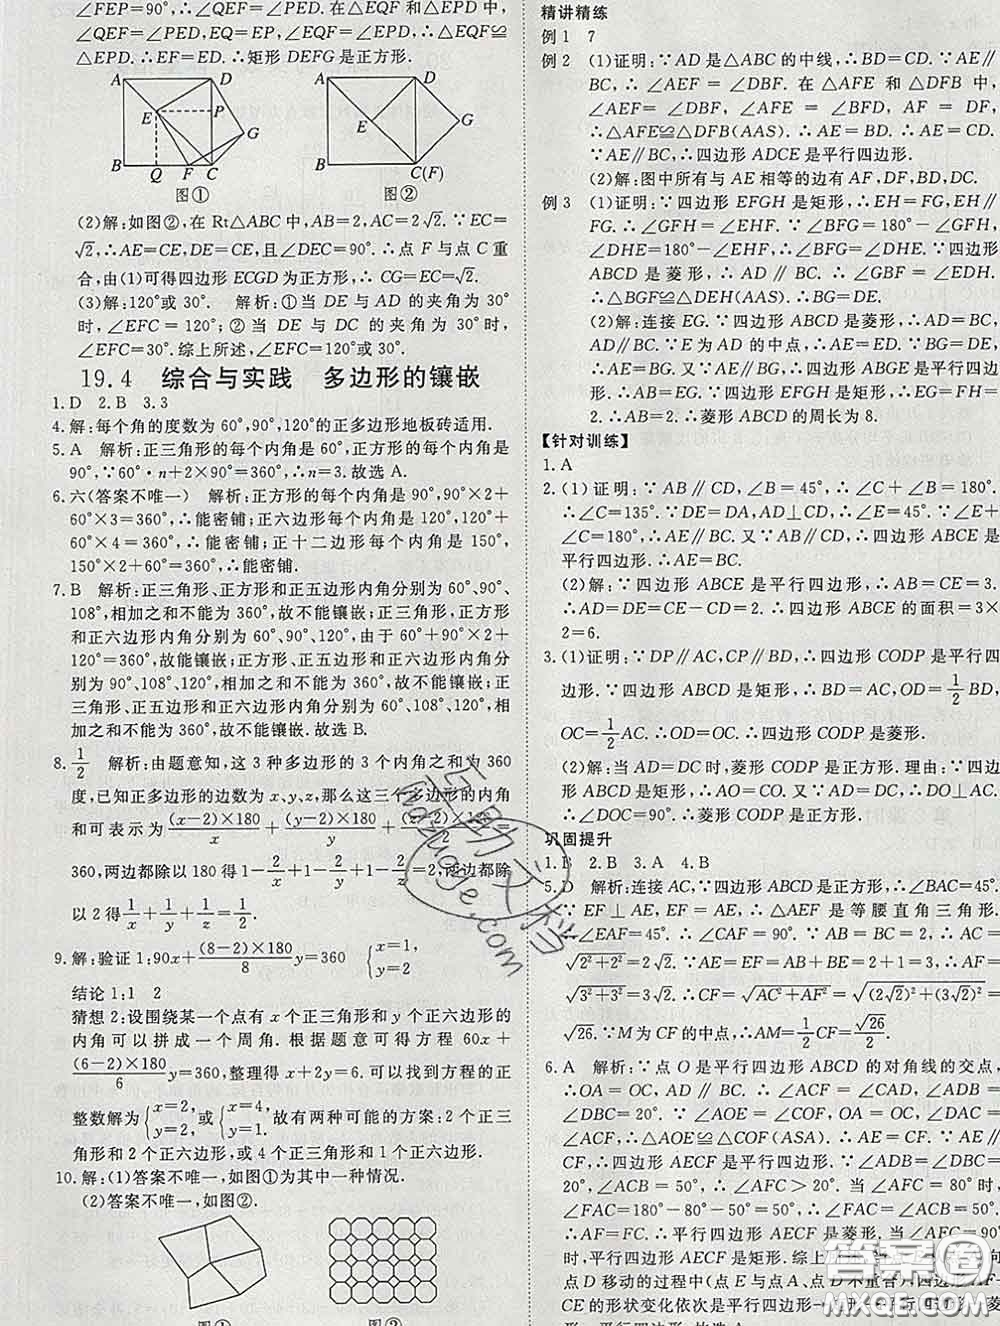 ∠FEP=90°,∴∠QEF=∠PED. 在△EQF 和△EPD 中,
∠EPD. ∴EF=ED. ∴矩形 DEFG 是正方形.
A D
E P
G
B Q F C
图①
A D
E G
B C(F)
图②
(2)解:如图②,在 Rt△ABC 中,AB=2,AC=2√2.∵EC=
√2,∴AE=CE,DE=CE,且∠DEC=90°.∴点 F 与点 C 重
合,由(1)可得四边形 ECGD 为正方形,∴CG=EC=√2.
(3)解:120°或 30°. 解析:①当 DE 与 AD 的夹角为 30°
时,∠EFC=120°;②当 DE 与 DC 的夹角为 30°时,
∠EFC=30°.综上所述,∠EFC=120°或 30°.
19.4 综合与实践 多边形的镶嵌
1.D 2.B 3.3
4.解:每个角的度数为 60°,90°,120°的正多边形地板砖适用.
5.A 解析:正三角形的每个内角是 60°,正方形的每个内角是
90°,∵60°·n+2×90°=360°,∴n=3.故选 A.
6.六(答案不唯一) 解析:正方形的每个内角是 90°,90°×2+
60°×3=360°,∴能密铺;正六边形每个内角是 120°,120°+
60°×4=360°,∴能密铺;正十二边形每个内角是 150°,
150°×2+60°=360°,∴能密铺.
7.B 解析:正三角形、正方形和正五边形内角分别为 60°、90°、
108°,相加之和不能为 360°,故不能镶嵌;正三角形、正方形
和正六边形内角分别为 60°、90°、120°,由于 60°+90°×
2+120°=360°,故能镶嵌;正方形、正五边形和正六边形内角分
别为 90°、108°、120°,相加之和不能为 360°,故不能镶嵌;正
三角形、正五边形和正六边形内角分别为 60°、108°、120°,相
加之和不能为 360°,故不能镶嵌.故选 B.
8.1/2 解析:由题意知,这 3 种多边形的 3 个内角之和为 360
度,已知正多边形的边数为 x、y、z,那么这三个多边形的内角
和可表示为 (x−2)×180/x + (y−2)×180/y + (z−2)×180/z =
360,两边都除以 180 得 1−2/x+1−2/y+1−2/z=2,两边都除
以 2 得 1/x+1/y+1/z=1/2.
9.解:验证 1:90x+(8−2)×180/8 y=360 {x=1, y=2
结论 1:1 2
猜想 2:设围绕某一个点有 x 个正三角形和 y 个正六边形的
内角可以拼成一个周角. 根据题意可得方程 60x+
(6−2)×180/6 y=360,整理得 x+2y=6.可以找到方程的正
整数解为{x=2, y=2,或{x=4, y=1,故有两种可能的方案:2 个正三
角形和 2 个正六边形,或 4 个正三角形和 1 个正六边形.
10.解:(1)答案不唯一,如图①为其中一种情况.
(2)答案不唯一,如图②.
图① 图②
精讲精练
例 1 7
例 2 (1)证明:∵AD 是△ABC 的中线,∴BD=CD.∵AE∥
BC,∴∠AEF=∠DBF. 在△AFE 和△DFB 中,
∠AEF=∠DBF,∠AFE=∠BFD,AF=DF,
∴△AFE≌△DFB(AAS).∴AE=BD.∴AE=CD.
∵AE∥BC,∴四边形 ADCE 是平行四边形.
(2)解:图中所有与 AE 相等的边有 AF,DF,BD,DC.
例 3 (1)证明:∵四边形 EFGH 是矩形,∴EH=FG,EH∥
FG.∴∠GFH=∠EHF.∵∠BFG=180°−∠GFH,
∠DHE=180°−∠EHF,∴∠BFG=∠DHE.∵四边形
ABCD 是菱形,∴AD∥BC.∴∠GBF=∠EDH.
∴△BGF≌△DEH(AAS).∴BG=DE.
(2)解:连接 EG.∵四边形 ABCD 是菱形,∴AD=
BC.∵E 为 AD 的中点,∴AE=ED.∵BG=DE,∴
AE=BG.又 AE∥BG,∴四边形 ABGE 是平行四边
形.∴AB=EG.∵四边形 EFGH 是矩形,∴EG=FH=
2.∴AB=2.∴菱形 ABCD 的周长为 8.
【针对训练】
1.A
2.(1)证明:∵AB∥CD,∠B=45°,∴∠C+∠B=180°.
∴∠C=135°.∵DE=DA,AD⊥CD,∴∠E=45°.∵∠E+
∠C=180°,∴AE∥BC.又∵AB∥CD,∴四边形 ABCE 是
平行四边形.∴AE=BC.
(2)解:∵四边形 ABCE 是平行四边形,∴AB=CE=3.
∴AD=DE=CE−CD=2.∴四边形 ABCE 的面积=3×
2=6.
3.(1)证明:∵DP∥AC,CP∥BD,∴四边形 CODP 是平行四
边形.∵四边形 ABCD 是矩形,∴BD=AC,OD=1/2 BD,
OC=1/2 AC.∴OD=OC.∴四边形 CODP 是菱形.
(2)解:当 AD=DC 时,菱形 CODP 是正方形. 理由:∵四边
形 ABCD 是矩形,∴AO=CO. 又∵AD=DC,∴DO⊥AC.
∴∠DOC=90°.∴菱形 CODP 是正方形.
巩固提升
1.B 2.B 3.A 4.B
5.D 解析:连接 AC,∵四边形 ABCD 是正方形,∴∠BAC=45°.
∵EF⊥AE,EF=AE,∴△AEF 是等腰直角三角形.
∴∠EAF=45°.∴∠CAF=90°.∵AB=BC=2,∴AC=
√2²+2²=2√2.∵AE=EF=AB+BE=2+1=3,∴AF=
√3²+3²=3√2.∴CF=√AC²+AF²=√(2√2)²+(3√2)²=
√26.∵M 为 CF 的中点,∴AM=1/2 CF=√26/2.
6.A 解析:∵点 O 是平行四边形 ABCD 的对角线的交点,
∴OA=OC,AD∥BC.∴∠ACF=∠CAD,∠ADB=
∠DBC=20°.∵∠AOE=∠COF,OA=OC,∠DAC=
∠ACF,∴△AOE≌△COF(ASA).∴AE=CF.∵AE∥CF,
∴四边形 AECF 是平行四边形.
20°,∠ACB=50°,∴∠AFC>20°. 当∠AFC=80°时,
∠FAC=180°−80°−50°=50°,∴∠FAC=∠ACB=50°.
∴AF=FC.∴平行四边形 AECF 是菱形. 当∠AFC=90°
时,平行四边形 AECF 是矩形.综上
点 D 移动的过程中(点 E 与点 A、点 D 不重合),四边形
CE 的形状变化依次是平行四边形
答案圈
MXQE.COM
云助文档
yunzhuge.com